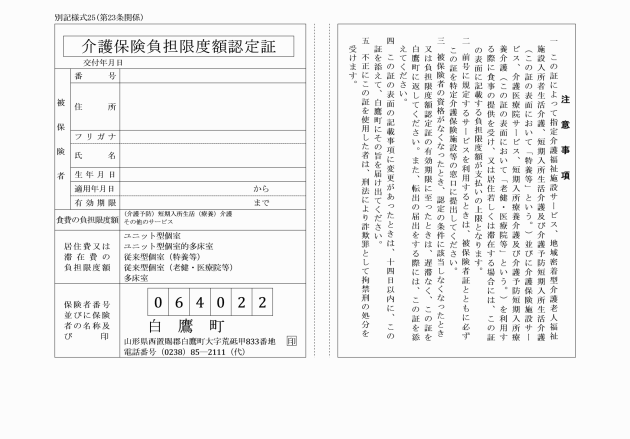 別記様式25(第23条関係)
介護保険負担限度額認定証
交付年月日
被保険者
番号
住所
フリガナ
氏名
生年月日
適用年月日 から
有効期限 まで
食費の負担限度額
(介護予防)短期入所生活(療養)介護
その他のサービス
居住費又は
滞在費の
負担限度額
ユニット型個室
ユニット型個室的多床室
従来型個室(特養等)
従来型個室(老健・医療院等)
多床室
保険者番号
並びに保険
者の名称及
び印
064022
白鷹町
山形県西置賜郡白鷹町大字荒砥甲833番地 印
電話番号(0238)85―2111(代)
注意事項
一 この証によって指定介護福祉施設サービス、地域密着型介護老人福祉
施設入所者生活介護、短期入所生活介護及び介護予防短期入所生活介護
(この証の表面において「特養等」という。)並びに介護保険施設サー
ビス、介護医療院サービス、短期入所療養介護及び介護予防短期入所療
養介護(この証の表面において「老健・医療院等」という。)を利用す
る際に食事の提供を受け、又は居住若しくは滞在する場合には、この証
の表面に記載する負担限度額が支払いの上限となります。
二 前号に規定するサービスを利用するときは、被保険者証とともに必ず
この証を特定介護保険施設等の窓口に提出してください。
三 被保険者の資格がなくなったとき、認定の条件に該当しなくなったとき
又は負担限度額認定証の有効期限に至ったときは、遅滞なく、この証を
白鷹町に返してください。また、転出の届出をする際には、この証を添
えてください。
四 この証の表面の記載事項に変更があったときは、十四日以内に、この
証を添えて、白鷹町にその旨を届け出てください。
五 不正にこの証を使用した者は、刑法により詐欺罪として拘禁刑の処分を
受けます。